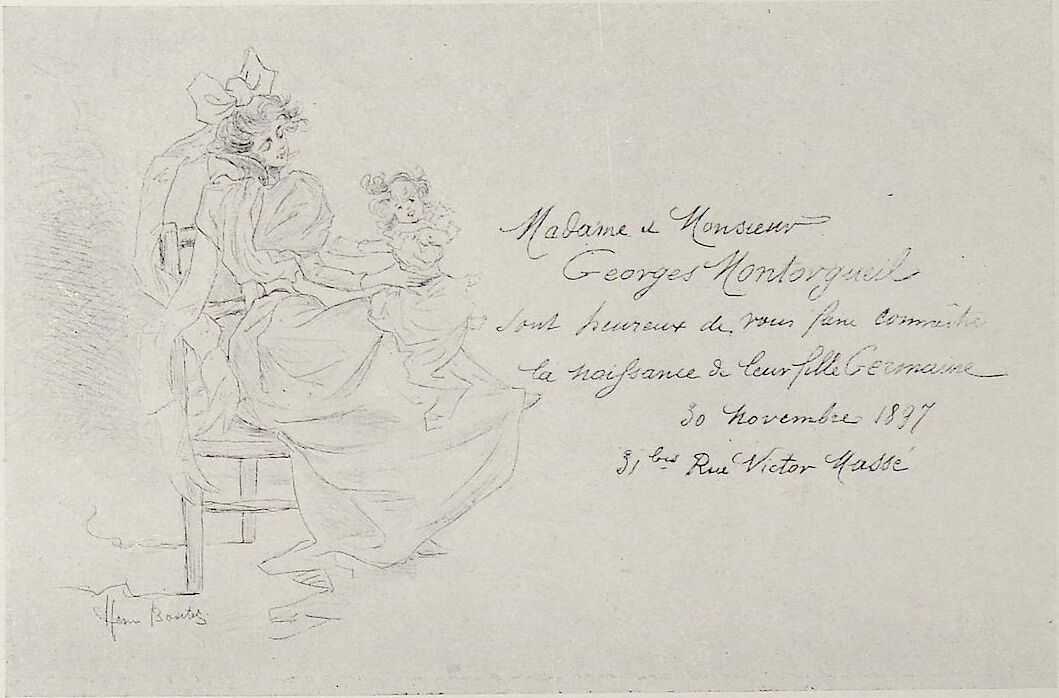 Madame et Monsieur
Georges Montorgueil
sont heureux de vous faire connaître
la naissance de leur fille Germaine
30 novembre 1897
31 bis Rue Victor Massé
Henri Boutet